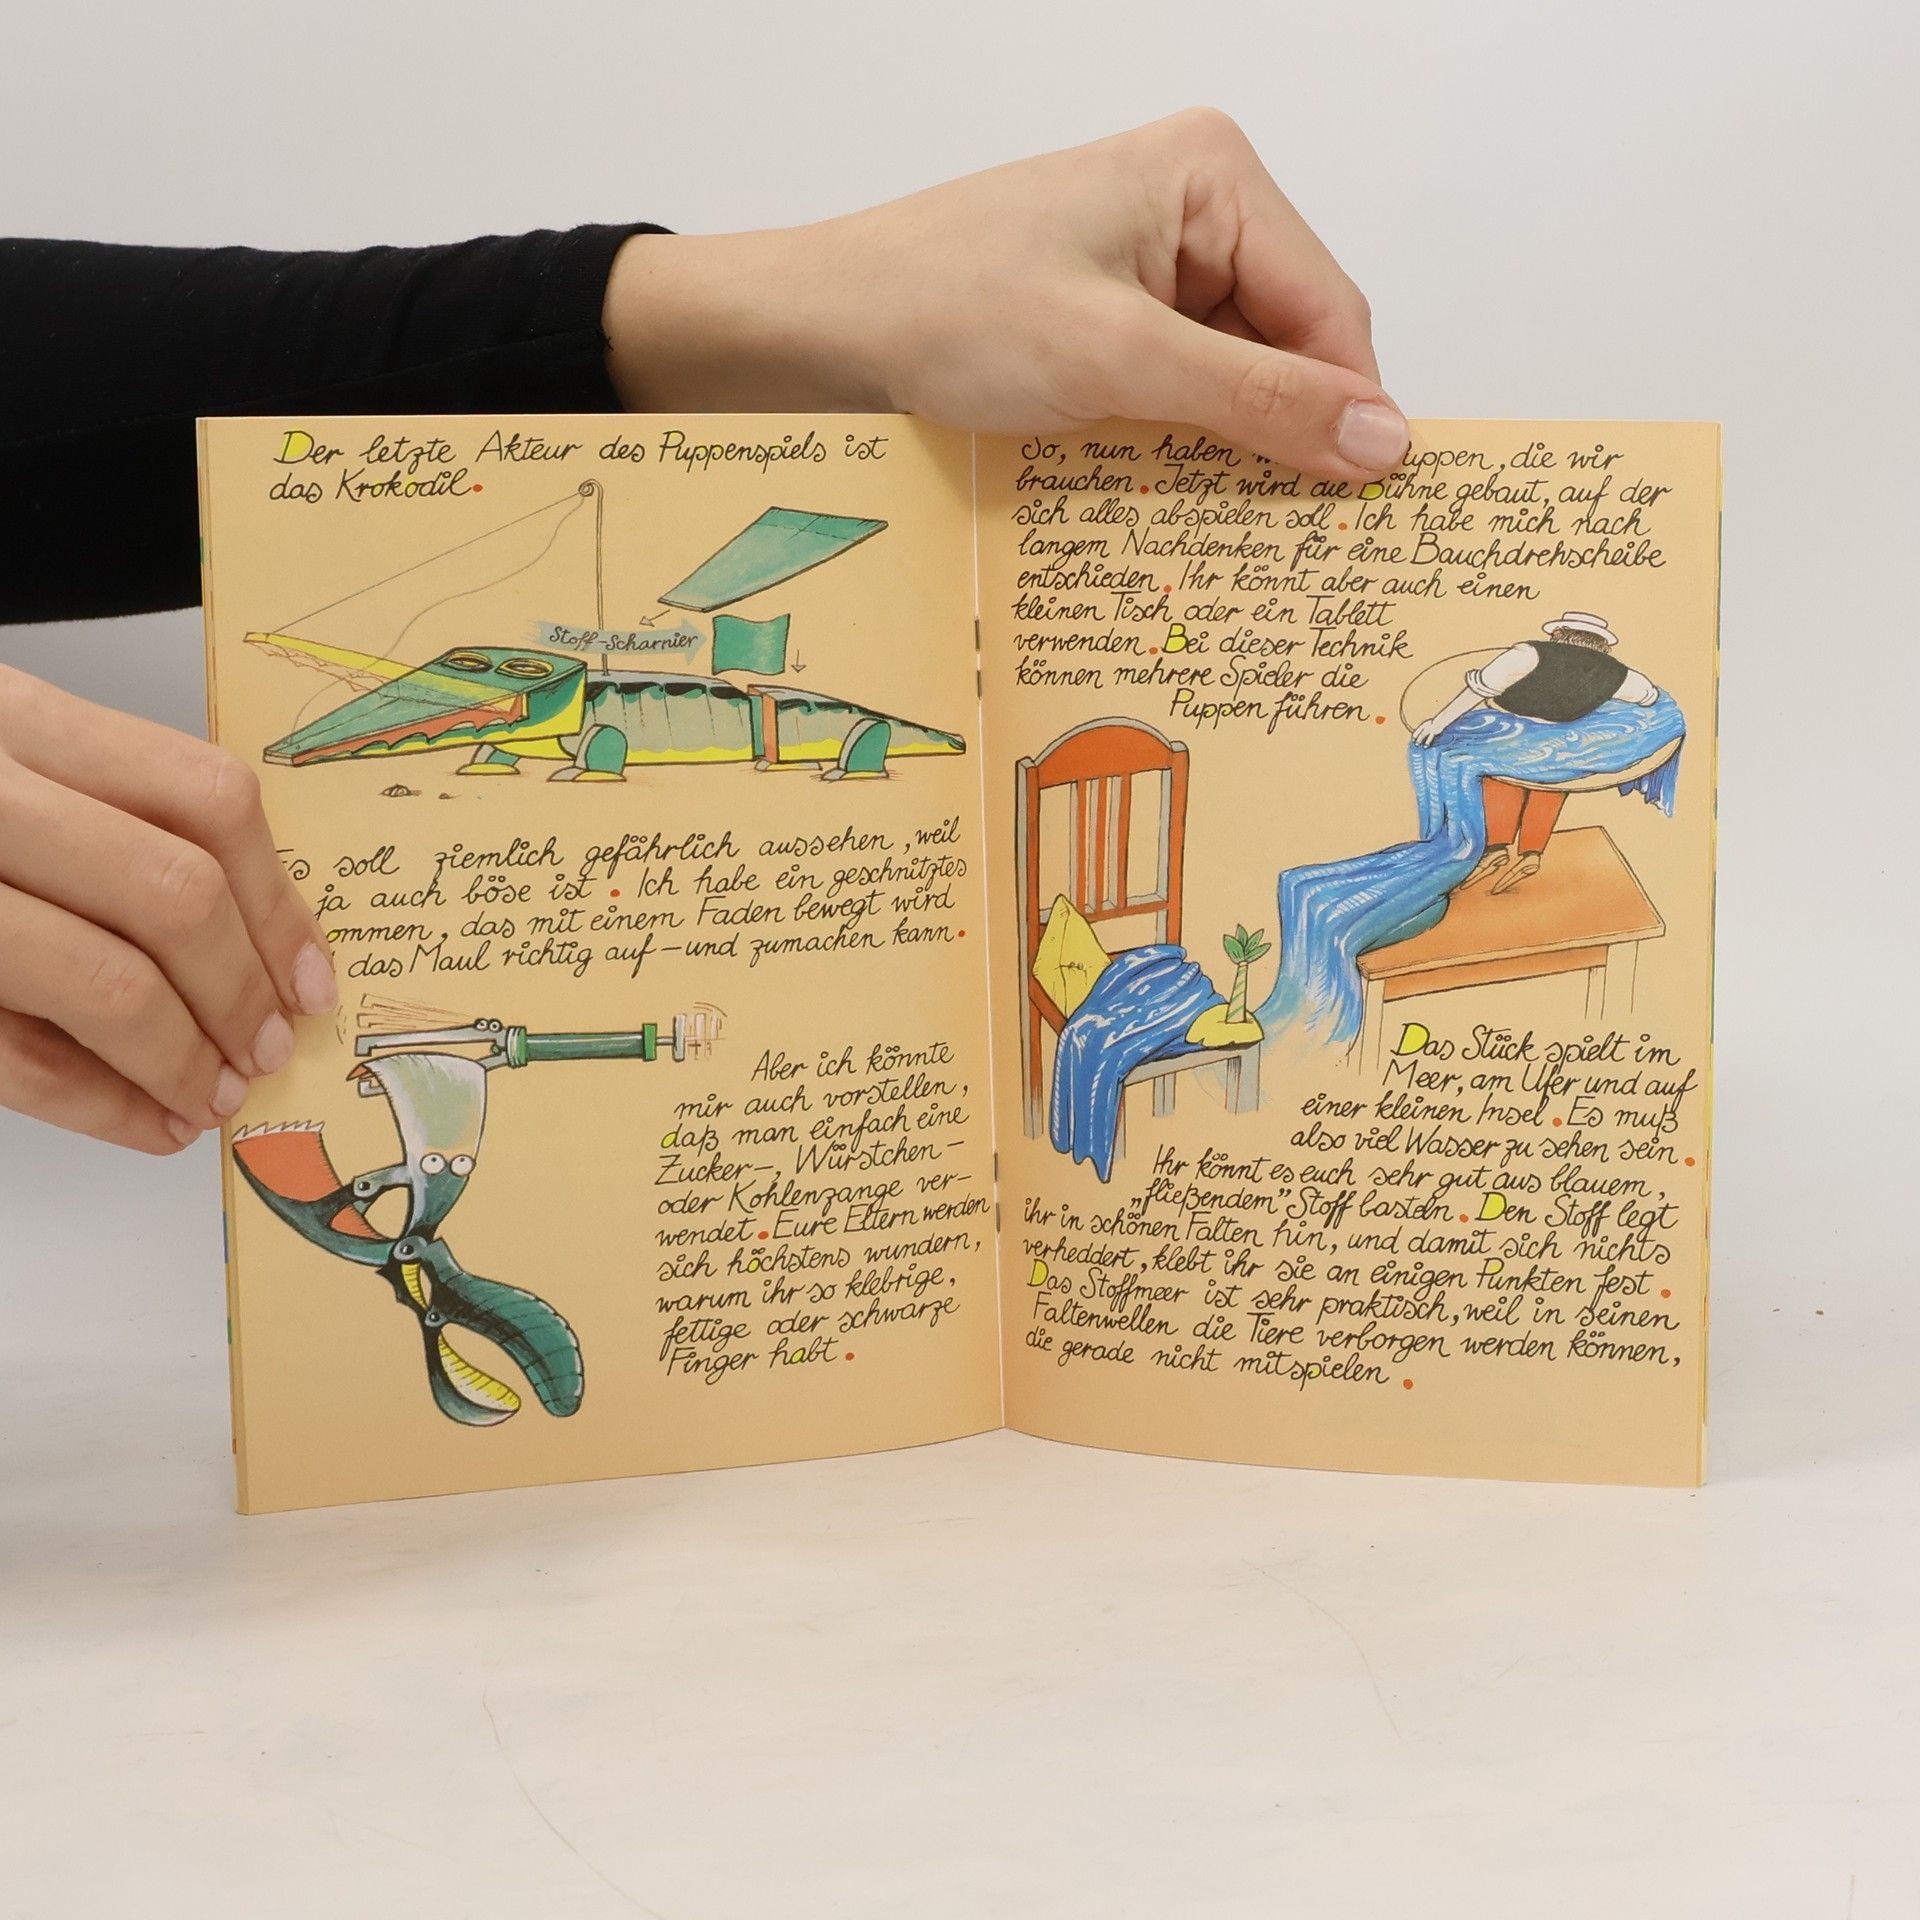 Der letzte Akteur des Puppenspiels ist
das Krokodil.
Stoff-Scharnier
soll ziemlich gefährlich aussehen, weil
ja auch böse ist. Ich habe ein geschnitztes
das mit einem Faden bewegt wird
das Maul richtig auf- und zumachen kann.
Aber ich könnte
mir auch vorstellen,
daß man einfach eine
Zucker-, Würstchen-
oder Kohlenzange ver-
wendet. Eure Eltern werden
sich höchstens wundern,
warum ihr so klebrige,
fettige oder schwarze
Finger habt.
So, nun haben die wir
brauchen. Jetzt wird die Bühne gebaut, auf der
sich alles abspielen soll. Ich habe mich nach
langem Nachdenken für eine Bauchdrehscheibe
entschieden. Ihr könnt aber auch einen
kleinen Tisch oder ein Tablett
verwenden. Bei dieser Technik
können mehrere Spieler die
Puppen führen.
Das Stück spielt im
Meer, am Ufer und auf
einer kleinen Insel. Es muß
also viel Wasser zu sehen sein.
Ihr könnt es euch sehr gut aus blauem,
„fließendem" Stoff basteln. Den Stoff legt
ihr in schönen Falten hin, und damit sich nichts
verheddert, klebt ihr sie an einigen Punkten fest.
Das Stoffmeer ist sehr praktisch, weil in seinen
Faltenwellen die Tiere verborgen werden können,
die gerade nicht mitspielen.